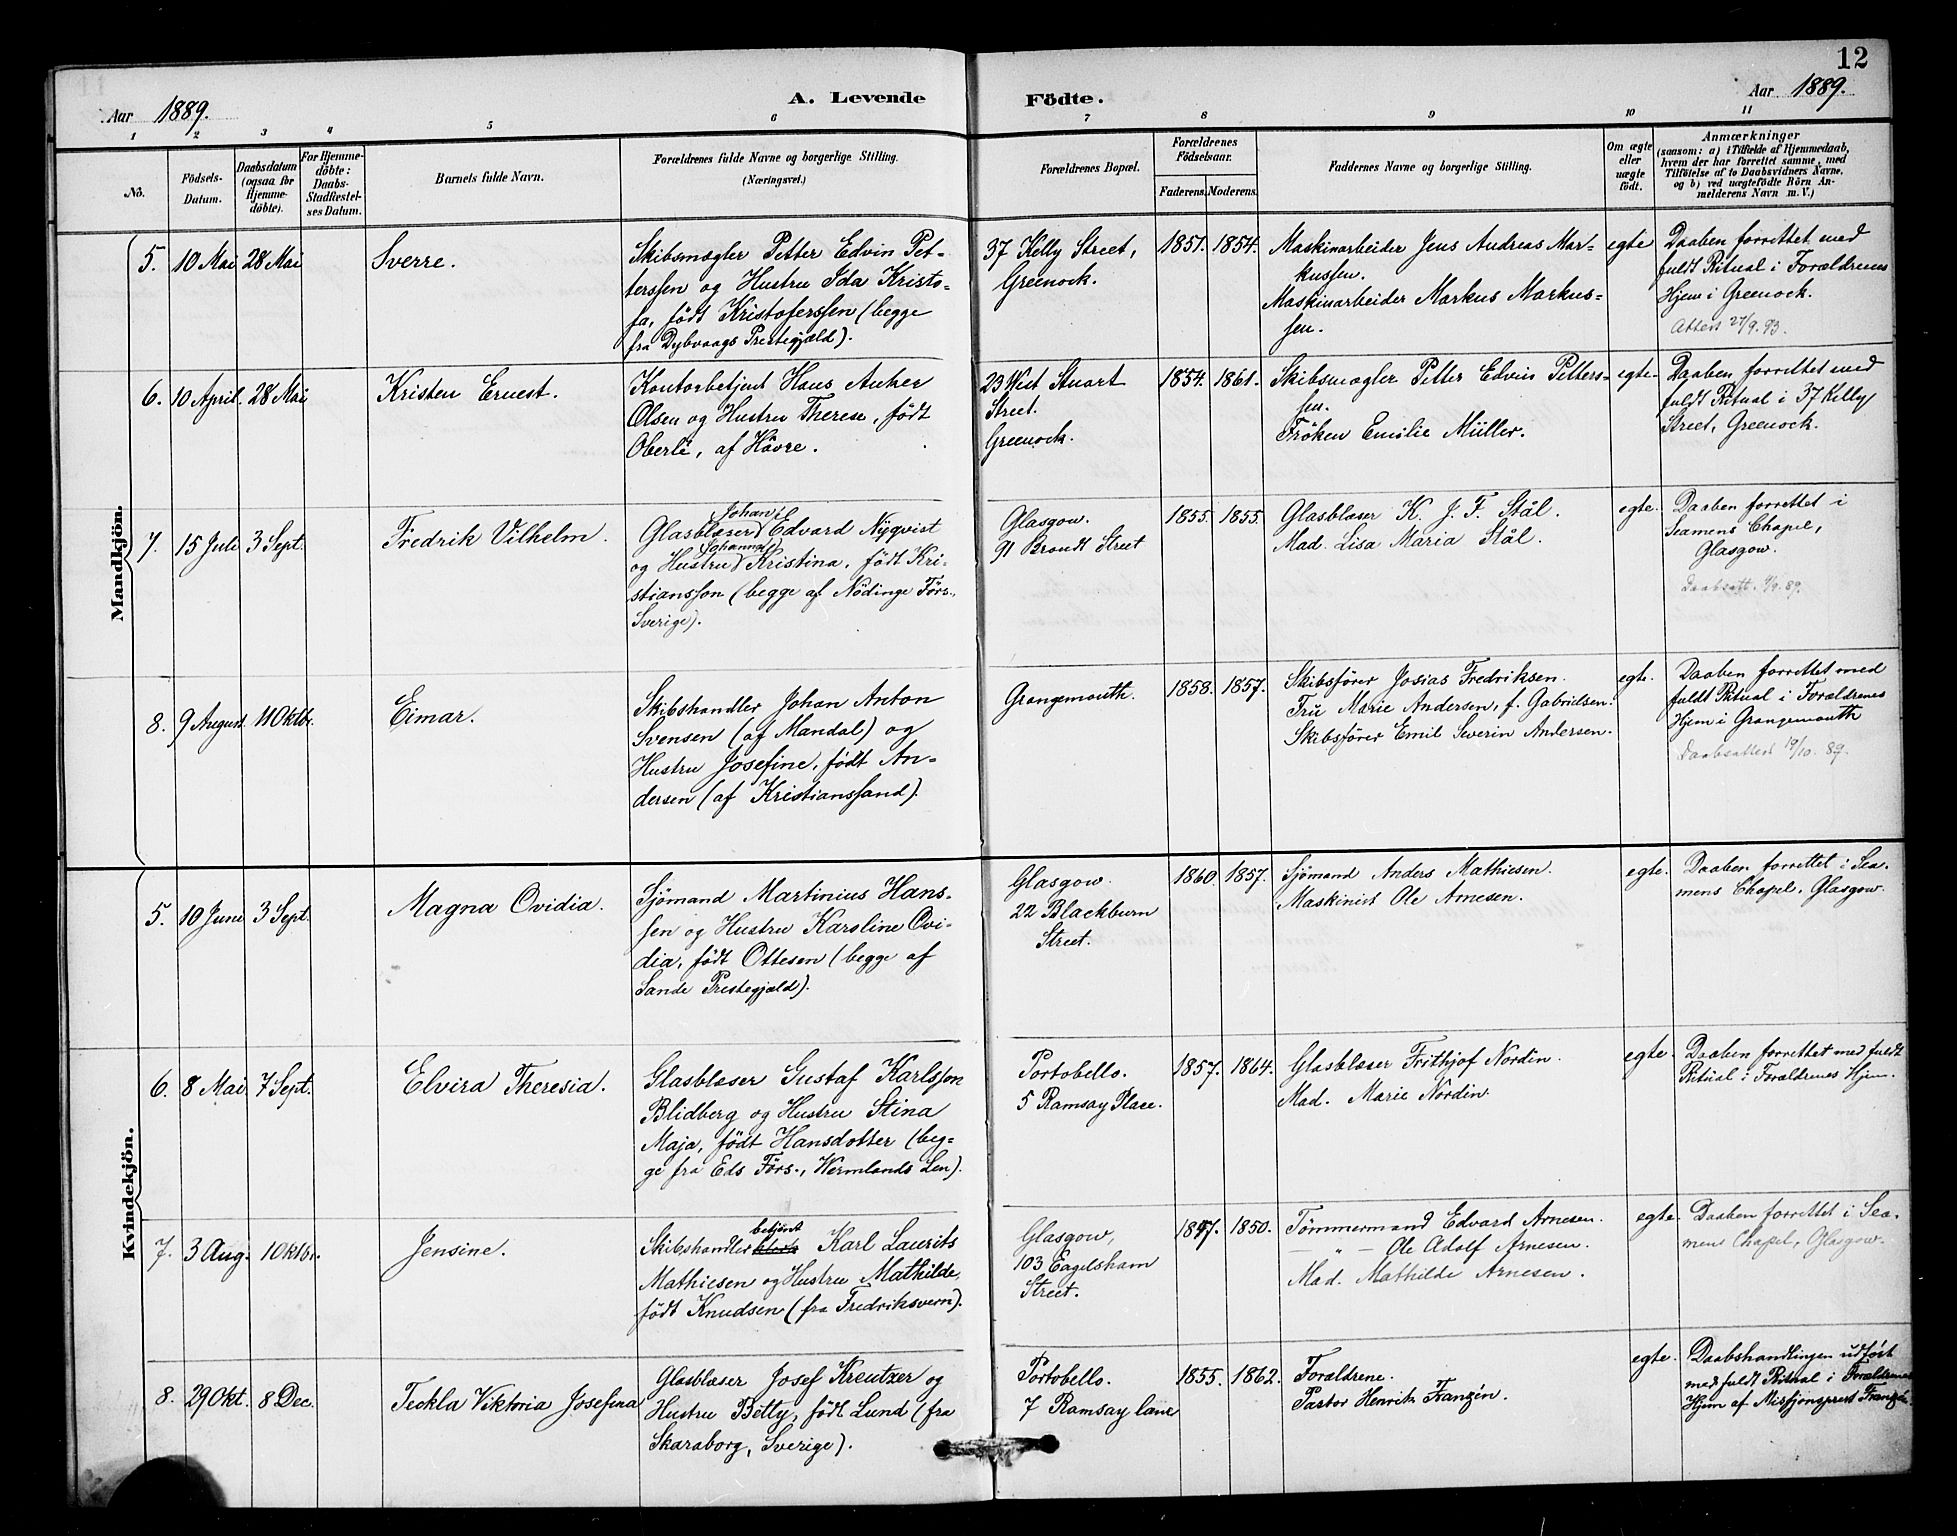 12
Aar 1889.
A. Levende Födte.
Aar 1889.
1 2 3 4 5 6 7 8 9 10 11
No.
Födsels-
Datum.
Daabsdatum
(ogsaa for
Hjemme-
döbte).
For Hjemme-
döbte:
Daabs-
Stadfæstel-
ses Datum.
Barnets fulde Navn.
Forældrenes fulde Navne og borgerlige Stilling.
(Næringsvei.)
Forældrenes Bopæl.
Forældrenes
Födselsaar.
Faderens. Moderens.
Faddernes Navne og borgerlige Stilling.
Om ægte
eller
uægte
födt.
Anmærkninger
(saasom: a) i Tilfælde af Hjemmedaab,
hvem der har forrettet samme, med
Tilföielse af to Daabsvidners Navne,
og b) ved uægtefödte Börn An-
melderens Navn m. V.)
Mandkjön.
5. 10 Mai 28 Mai
Sverre.
Skibsmægler Petter Edvin Pet-
terssen og Hustru Ida Kristo-
fa, født Kristoferssen (begge
fra Dybvaags Prestegjæld).
37 Kelly Street,
Greenock.
1851. 1854.
Maskinarbeider Jens Andreas Mar-
kussen.
Maskinarbeider Markus Markus-
sen.
egte
Daaben forrettet med
fuldt Ritual i Forældrenes
Hjem i Greenock.
Attest 27/9.93.
6. 10 April. 28 Mai
Kristen Ernest.
Kontorbetjent Hans Anker
Olsen og Hustru Therese, født
Oberlé, af Hâvre.
23 West Stuart
Street.
Greenock.
1854. 1861.
Skibsmægler Petter Edvin Petters-
sen.
Fröken Emilie Müller.
egte.
Daaben forrettet med
fuldt Ritual i 37 Kelly
Street, Greenock.
7. 15 Juli 3 Sept.
Fredrik Vilhelm.
Johan
Glasblæser Edvard Nyqvist
Johanna
og Hustru Kristina, født Kri-
stiansson (begge af Nödinge Förs.,
Sverige).
Glasgow.
91 Brondt Street
1855. 1855.
Glasblæser K. J. F. Stål.
Mad. Lisa Maria Stål.
egte.
Daaben forrettet i
Seamens Chapel,
Glasgow.
Daabsatt. 4/9.89.
8. 9 August. 11 Oktbr.
Eimar.
Skibshandler Johan Anton
Svensen (af Mandal) og
Hustru Josefine, født An-
dersen (af Kristianssand).
Grangemouth.
1858. 1857.
Skibsfører Josias Fredriksen.
Fru Marie Andersen, f. Gabrielsen.
Skibsfører Emil Severin Andersen.
egte.
Daaben forrettet med
fuldt Ritual i Forældrenes
Hjem i Grangemouth
Daabsattest 19/10.89.
Kvindekjön.
5. 10 Juni 3 Sept.
Magna Ovidia.
Sjömand Martinius Hans-
sen og Hustru Karoline Ovi-
dia, født Ottesen (begge af
Sande Prestegjæld).
Glasgow.
22 Blackburn
Street.
1860. 1857.
Sjömand Anders Mathiesen.
Maskinist Ole Arnesen.
egte.
Daaben forrettet i Sea-
mens Chapel, Glasgow.
6. 8 Mai. 7 Sept.
Elvira Theresia.
Glasblæser Gustaf Karlsson
Blidberg og Hustru Stina
Maja, født Hansdotter (beg-
ge fra Eds Förs., Wermlands Len).
Portobello.
5 Ramsay Place.
1857. 1864.
Glasblæser Frithjof Nordin.
Mad. Marie Nordin.
egte.
Daaben forrettet med fuldt
Ritual i Forældrenes Hjem.
7. 3 Aug. 1 Oktbr.
Jensine.
betjent
Skibshandlerklerk Karl Laurits
Mathiesen og Hustru Mathilde,
født Knudsen (fra Fredriksvern).
Glasgow,
103 Eagelsham
Street.
1847. 1850.
Tömmermand Edvard Arnesen.
— " — Ole Adolf Arnesen.
Mad. Mathilde Arnesen.
egte.
Daaben forrettet i Sea-
mens Chapel, Glasgow.
8. 29 Okt. 8 Dec.
Teckla Viktoria Josefina
Glasblæser Josef Kreutzer og
Hustru Betty, født Lund (fra
Skaraborg, Sverige).
Portobello.
7 Ramsay lane
1855. 1862.
Forældrene.
Pastor Henrik Franzén.
egte.
Daabshandlingen udført
med fuldt Ritual i Forældrenes
Hjem af Missjonsprest Franzén.